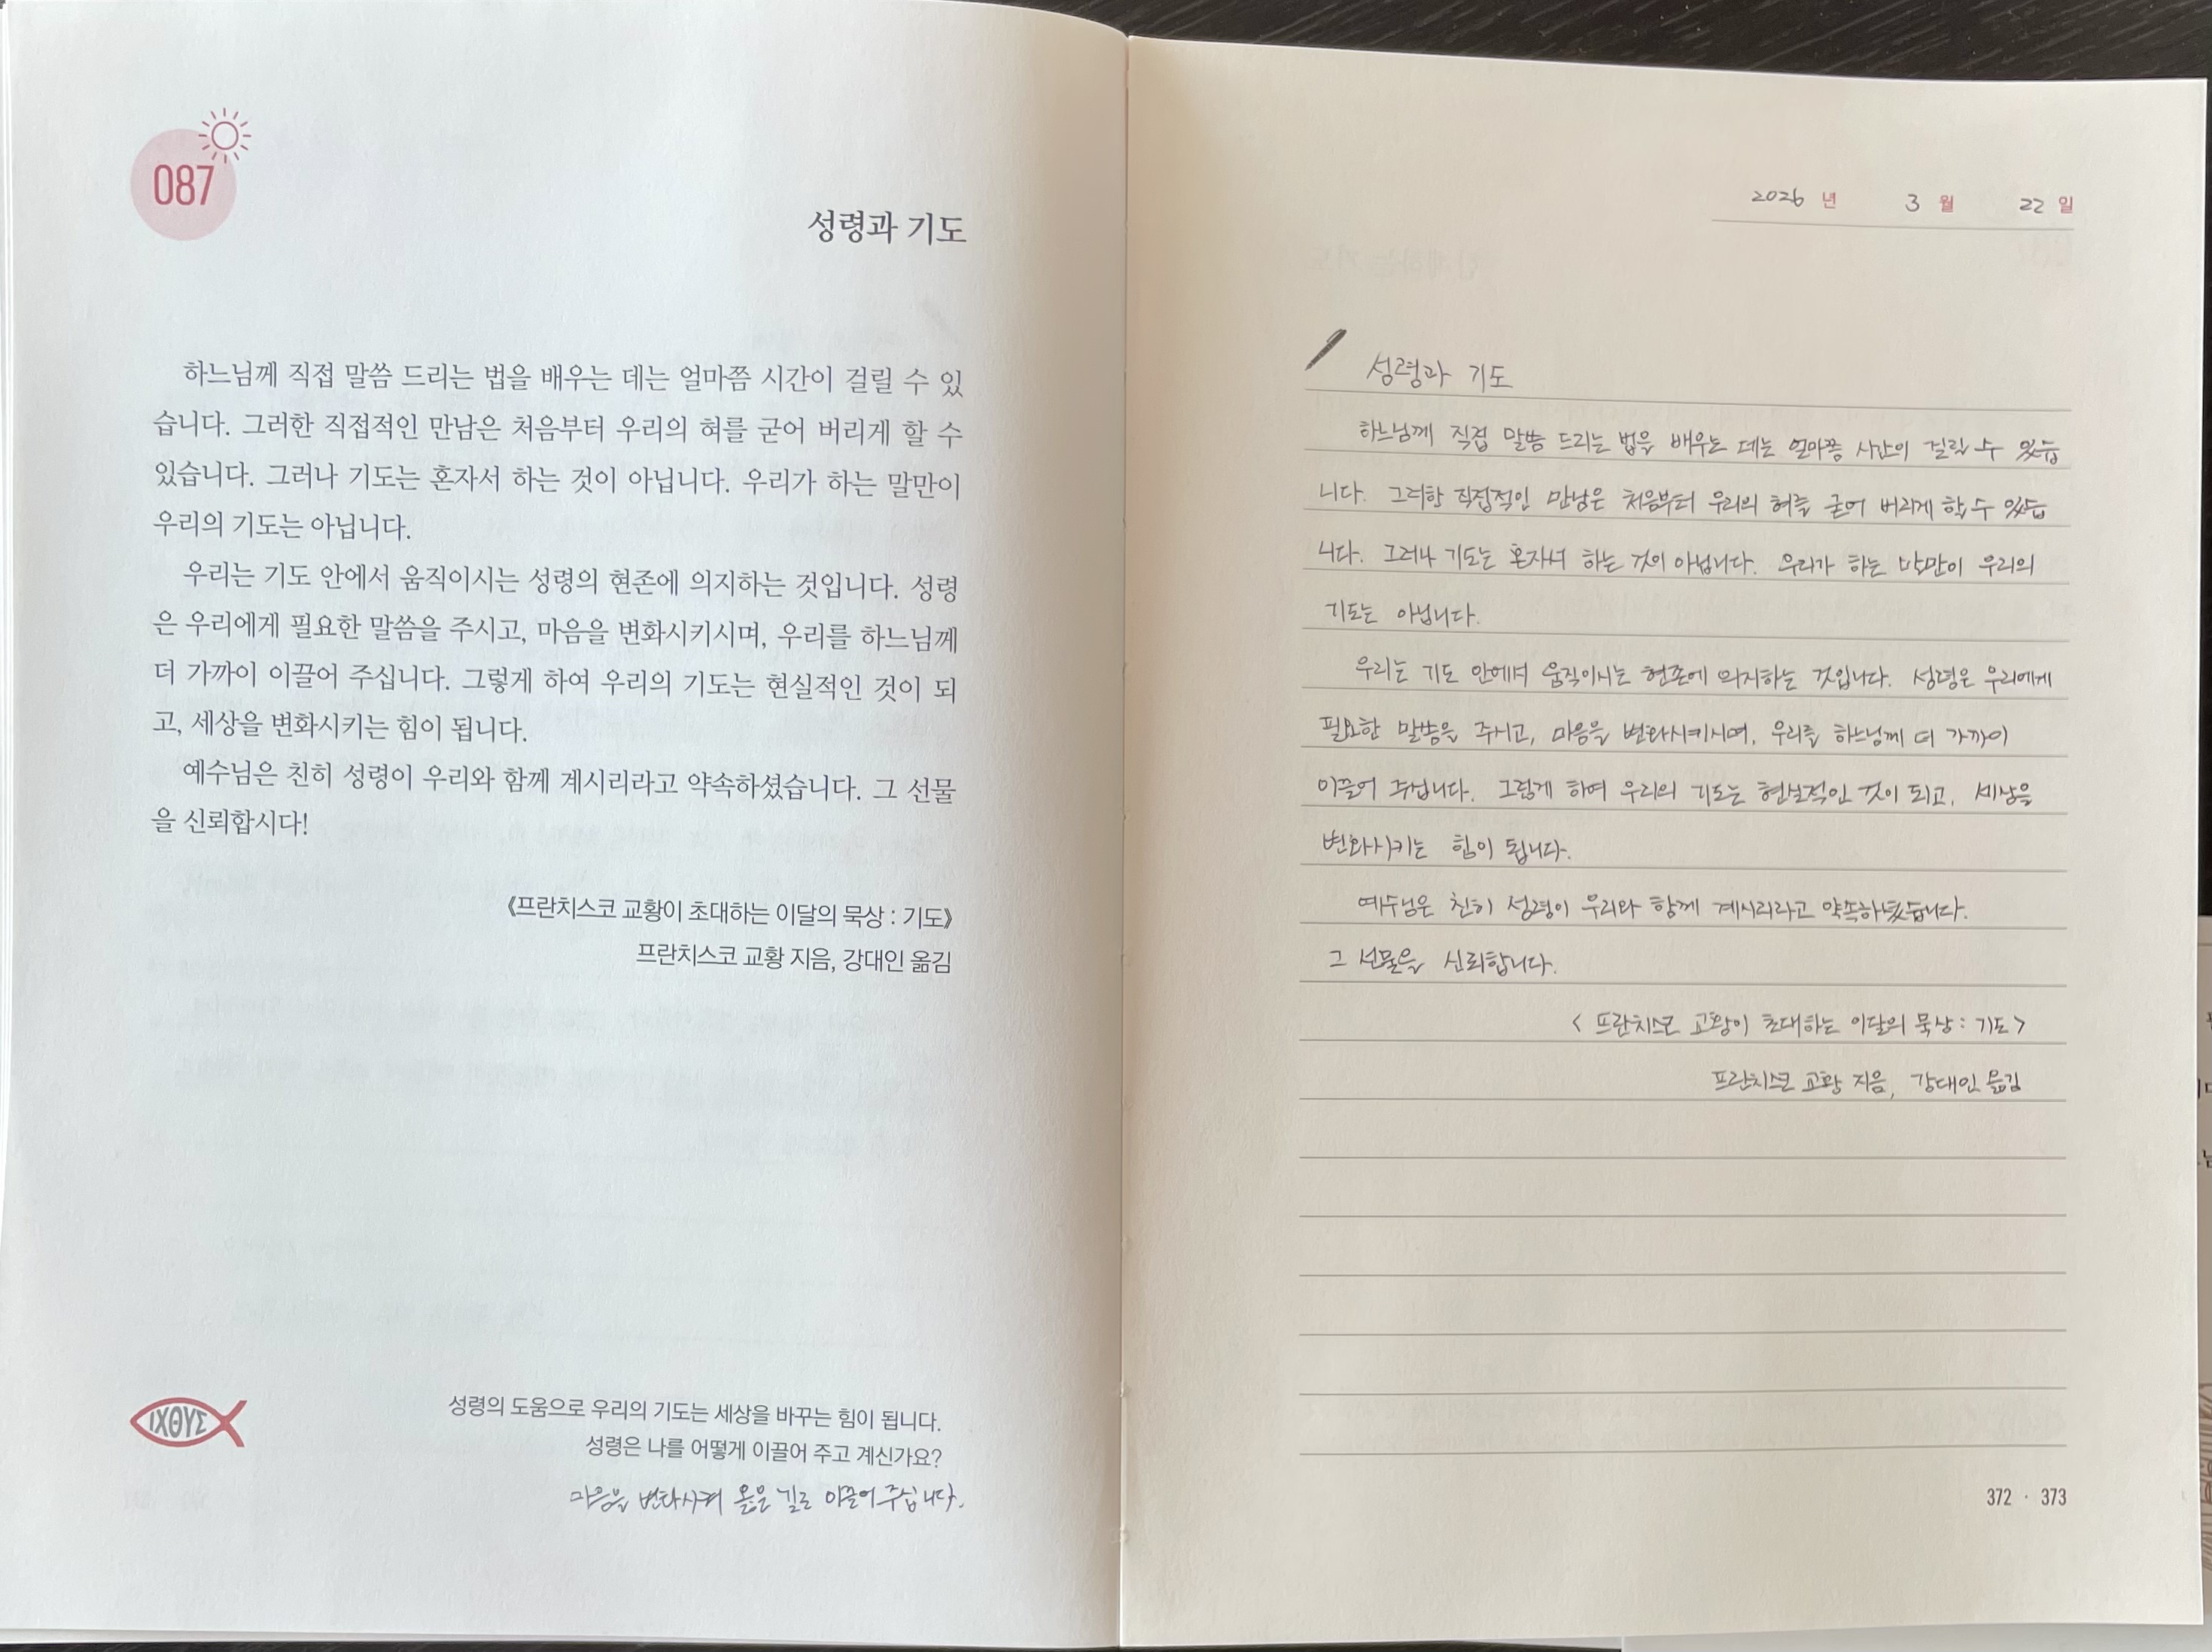 087
성령과 기도
하느님께 직접 말씀 드리는 법을 배우는 데는 얼마쯤 시간이 걸릴 수 있
습니다. 그러한 직접적인 만남은 처음부터 우리의 혀를 굳어 버리게 할 수
있습니다. 그러나 기도는 혼자서 하는 것이 아닙니다. 우리가 하는 말만이
우리의 기도는 아닙니다.
우리는 기도 안에서 움직이시는 성령의 현존에 의지하는 것입니다. 성령
은 우리에게 필요한 말씀을 주시고, 마음을 변화시키시며, 우리를 하느님께
더 가까이 이끌어 주십니다. 그렇게 하여 우리의 기도는 현실적인 것이 되
고, 세상을 변화시키는 힘이 됩니다.
예수님은 친히 성령이 우리와 함께 계시리라고 약속하셨습니다. 그 선물
을 신뢰합시다!
《프란치스코 교황이 초대하는 이달의 묵상 : 기도》
프란치스코 교황 지음, 강대인 옮김
ΙΧΘΥΣ
성령의 도움으로 우리의 기도는 세상을 바꾸는 힘이 됩니다.
성령은 나를 어떻게 이끌어 주고 계신가요?
마음을 변화시켜 옳은 길로 이끌어 주십니다.
2026 년 3 월 22 일
성령과 기도
하느님께 직접 말씀 드리는 법을 배우는 데는 얼마쯤 시간이 걸릴 수 있습
니다. 그러한 직접적인 만남은 처음부터 우리의 혀를 굳어 버리게 할 수 있습
니다. 그러나 기도는 혼자서 하는 것이 아닙니다. 우리가 하는 말만이 우리의
기도는 아닙니다.
우리는 기도 안에서 움직이시는 현존에 의지하는 것입니다. 성령은 우리에게
필요한 말씀을 주시고, 마음을 변화시키시며, 우리를 하느님께 더 가까이
이끌어 주십니다. 그렇게 하여 우리의 기도는 현실적인 것이 되고, 세상을
변화시키는 힘이 됩니다.
예수님은 친히 성령이 우리와 함께 계시리라고 약속하셨습니다.
그 선물을 신뢰합니다.
< 프란치스코 교황이 초대하는 이달의 묵상 : 기도 >
프란치스코 교황 지음, 강대인 옮김
372 · 373